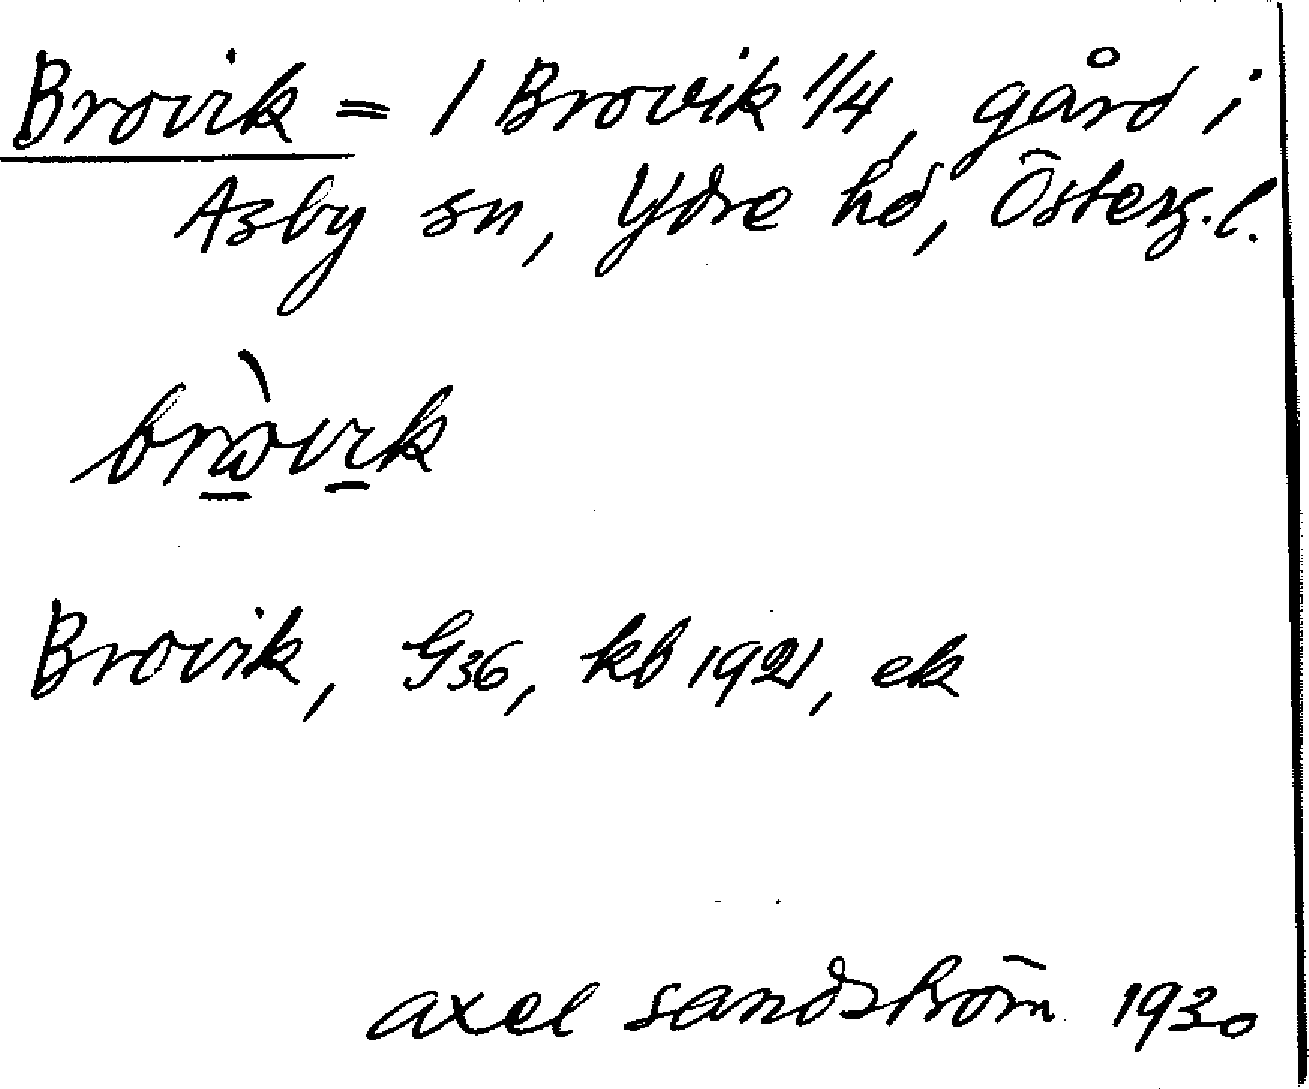 Brovik = 1 Brovik 1/4, gård i
Asby sn, Ydre hd, Österg.l.
brὼvιk
Brovik, G36, kb 1921, ek
axel sandström 1930